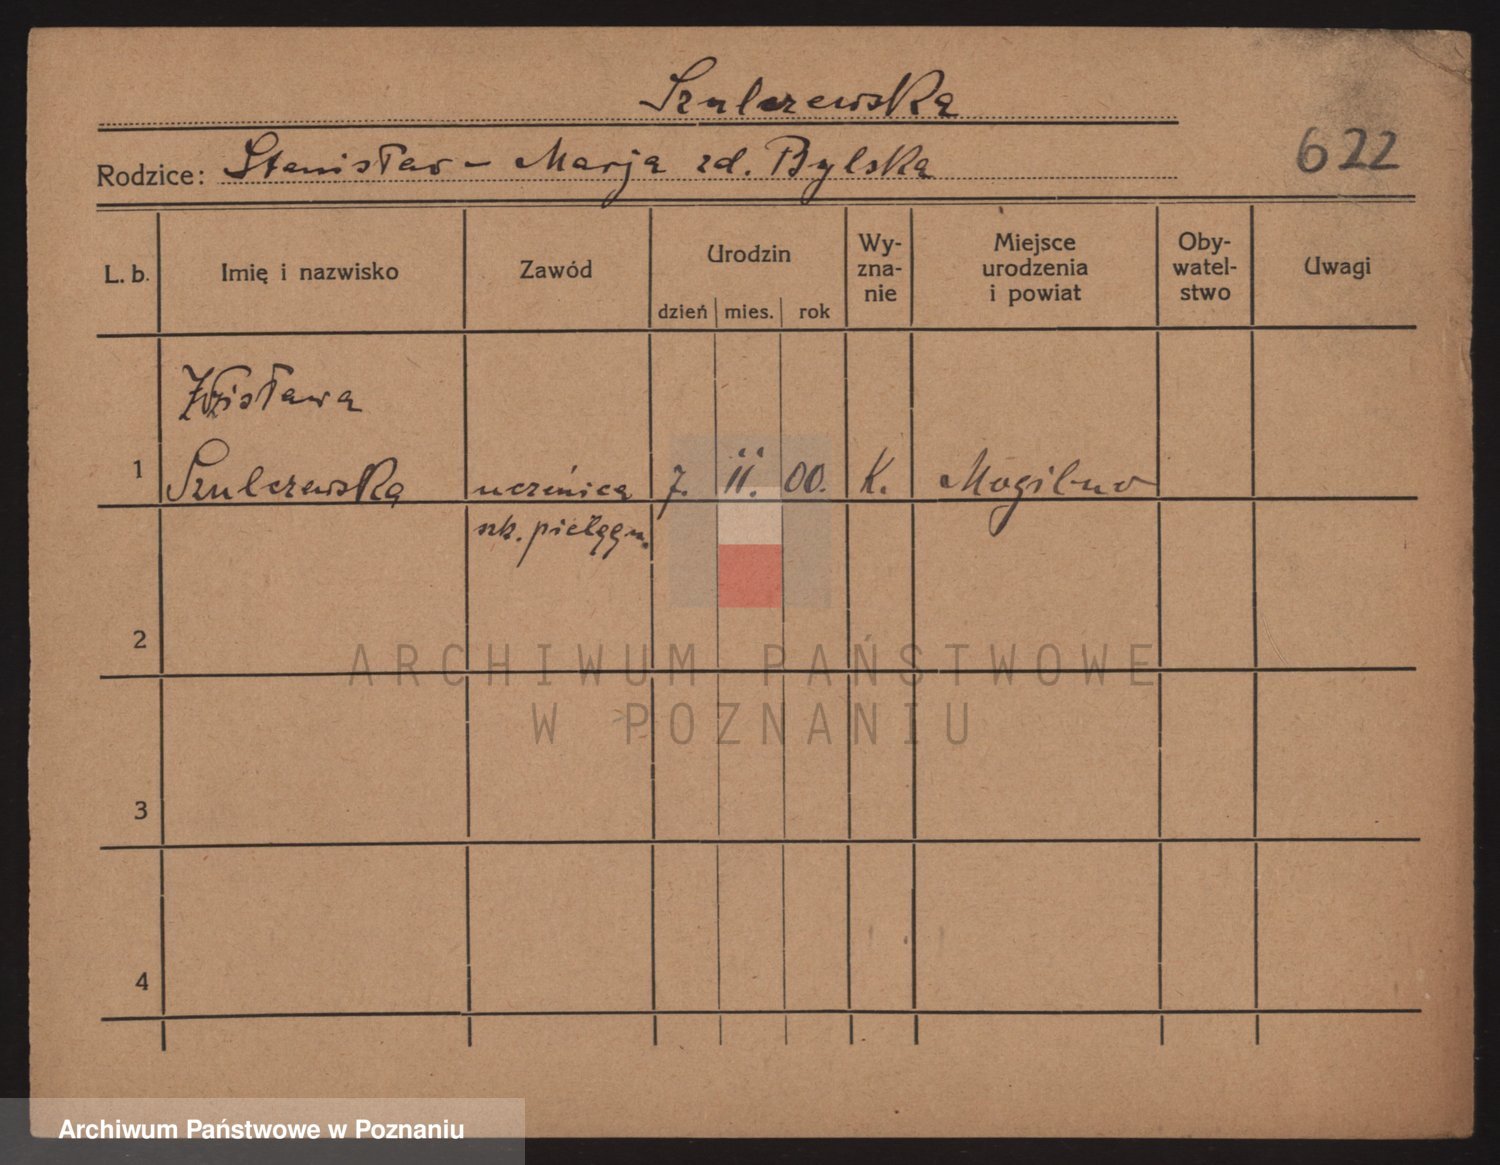 Szulczewska
622
Rodzice: Stanisław - Marja zd. Bylska
L. b.
Imię i nazwisko
Zawód
Urodzin
dzień mies. rok
Wy-
zna-
nie
Miejsce
urodzenia
i powiat
Oby-
watel-
stwo
Uwagi
Zdzisława
1 Szulczewska uczenica 7. II. 00. K. Mogilno
szk. pielęgn.
2
ARCHIWUM PAŃSTWOWE
W POZNANIU
3
4
Archiwum Państwowe w Poznaniu